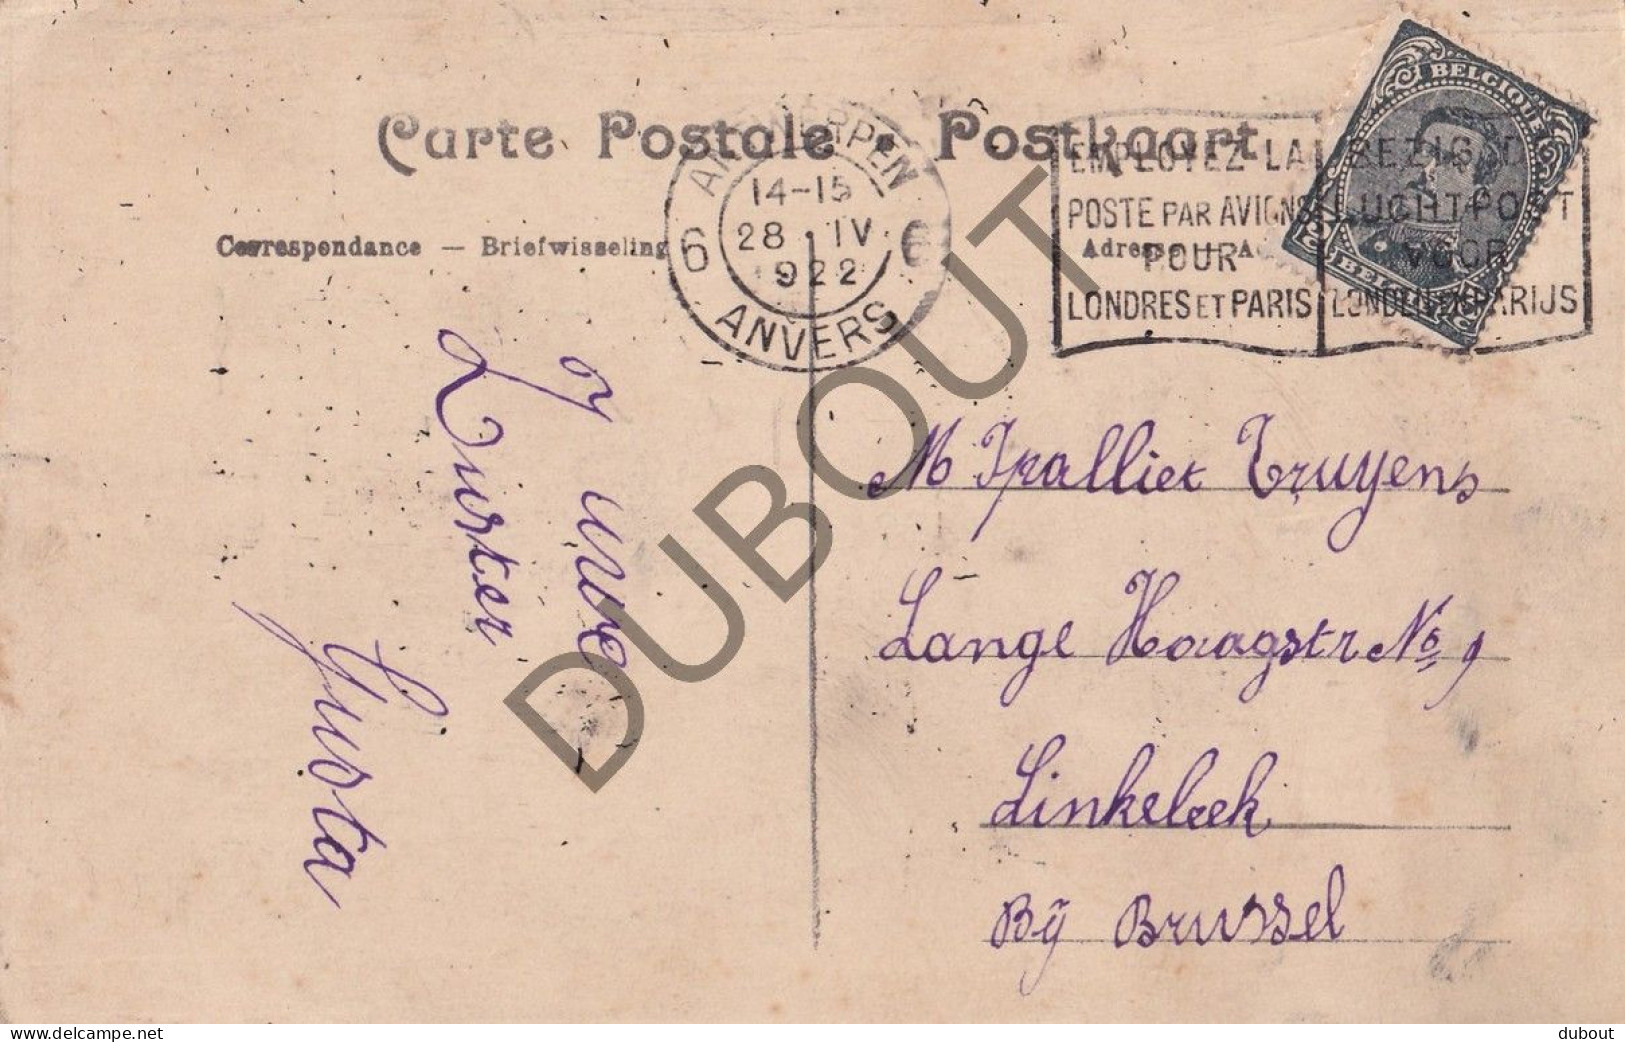 Carte Postale • Postkaart
Correspondance — Briefwisseling
Adresse — A
ANTWERPEN
14-15
28 · IV
922
6 6
ANVERS
EMPLOYEZ LA
POSTE PAR AVIONS
POUR
LONDRES ET PARIS
BEZIGD
LUCHTPOST
VOOR
LONDEN EN PARIJS
BELGIQUE
BELGIË
Uwe
Zuster
Gusta
M Truyens
Lange Haagstr No 9
Linkebeek
Bij Brussel
DUBOUT
dubout
www.delcampe.net